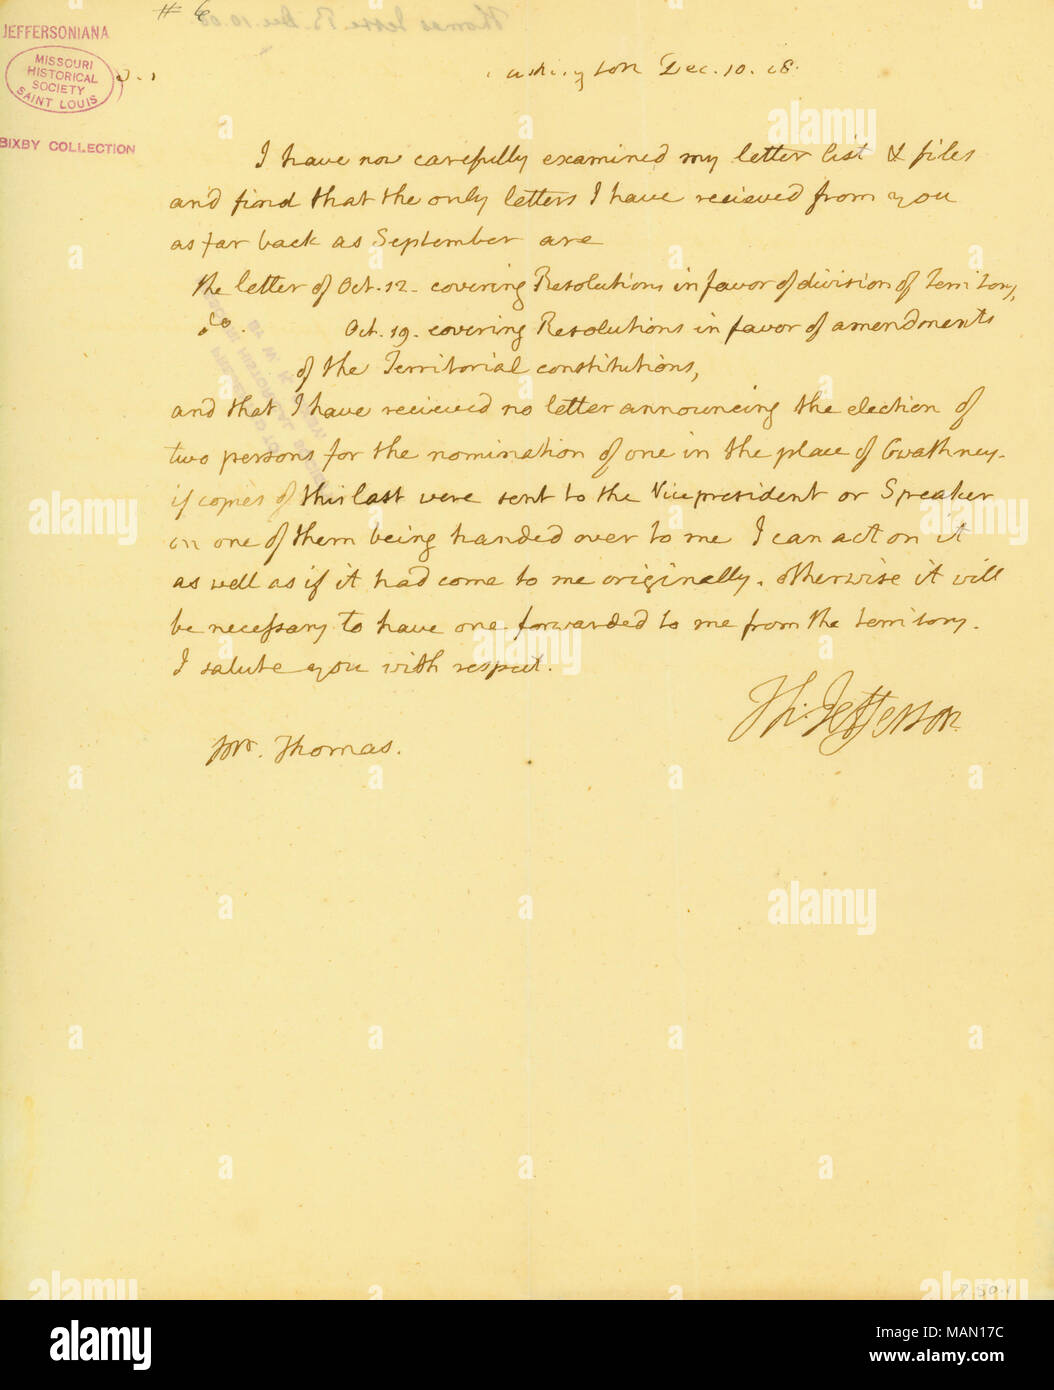 # 6
JEFFERSONIANA
MISSOURI
HISTORICAL
SOCIETY
SAINT LOUIS
BIXBY COLLECTION
Thomas Jesse B. Dec. 10. 08
Dec. 10. 08.
I have now carefully examined my letter list & files
and find that the only letters I have recieved from you
as far back as September are
the letter of Oct. 12. covering Resolutions in favor of division of Territory,
do. Oct. 19. covering Resolutions in favor of amendments
of the Territorial constitutions,
and that I have recieved no letter announcing the election of
two persons for the nomination of one in the place of Gwathney.
if copies of this last were sent to the Vice president or Speaker
on one of them being handed over to me I can act on it
as well as if it had come to me originally. otherwise it will
be necessary to have one forwarded to me from the territory.
I salute you with respect.
Th: Jefferson
Mr. Thomas.
alamy
Image ID: MAN17C
www.alamy.com